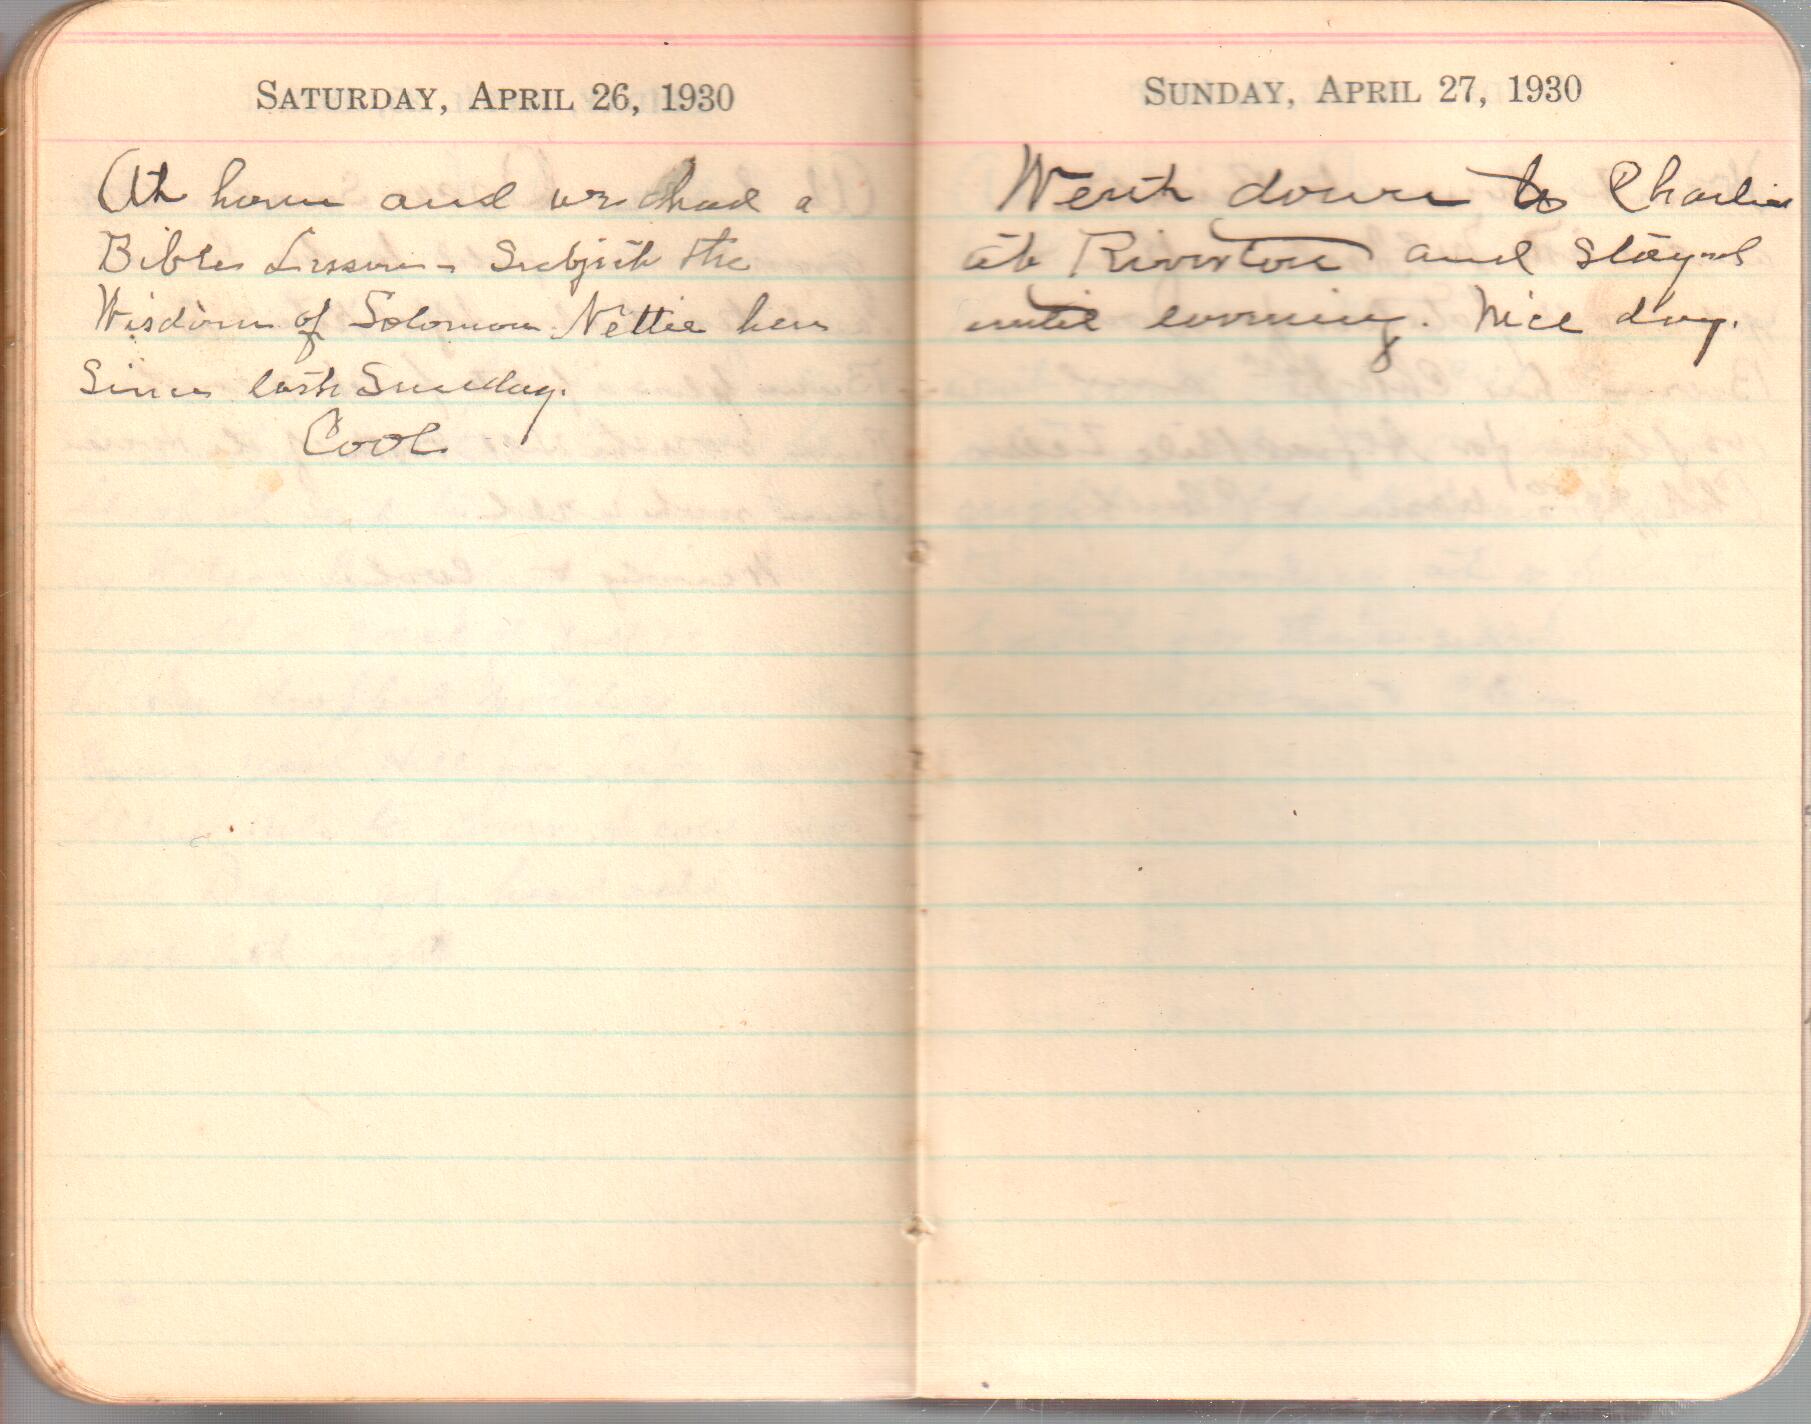 SATURDAY, APRIL 26, 1930
At home and we had a
Bible Lesson - Subject the
Wisdom of Solomon. Nettie here
Since last Sunday.
Cool
SUNDAY, APRIL 27, 1930
Went down to Charlies
at Riverton and stayed
until evening. Nice day.